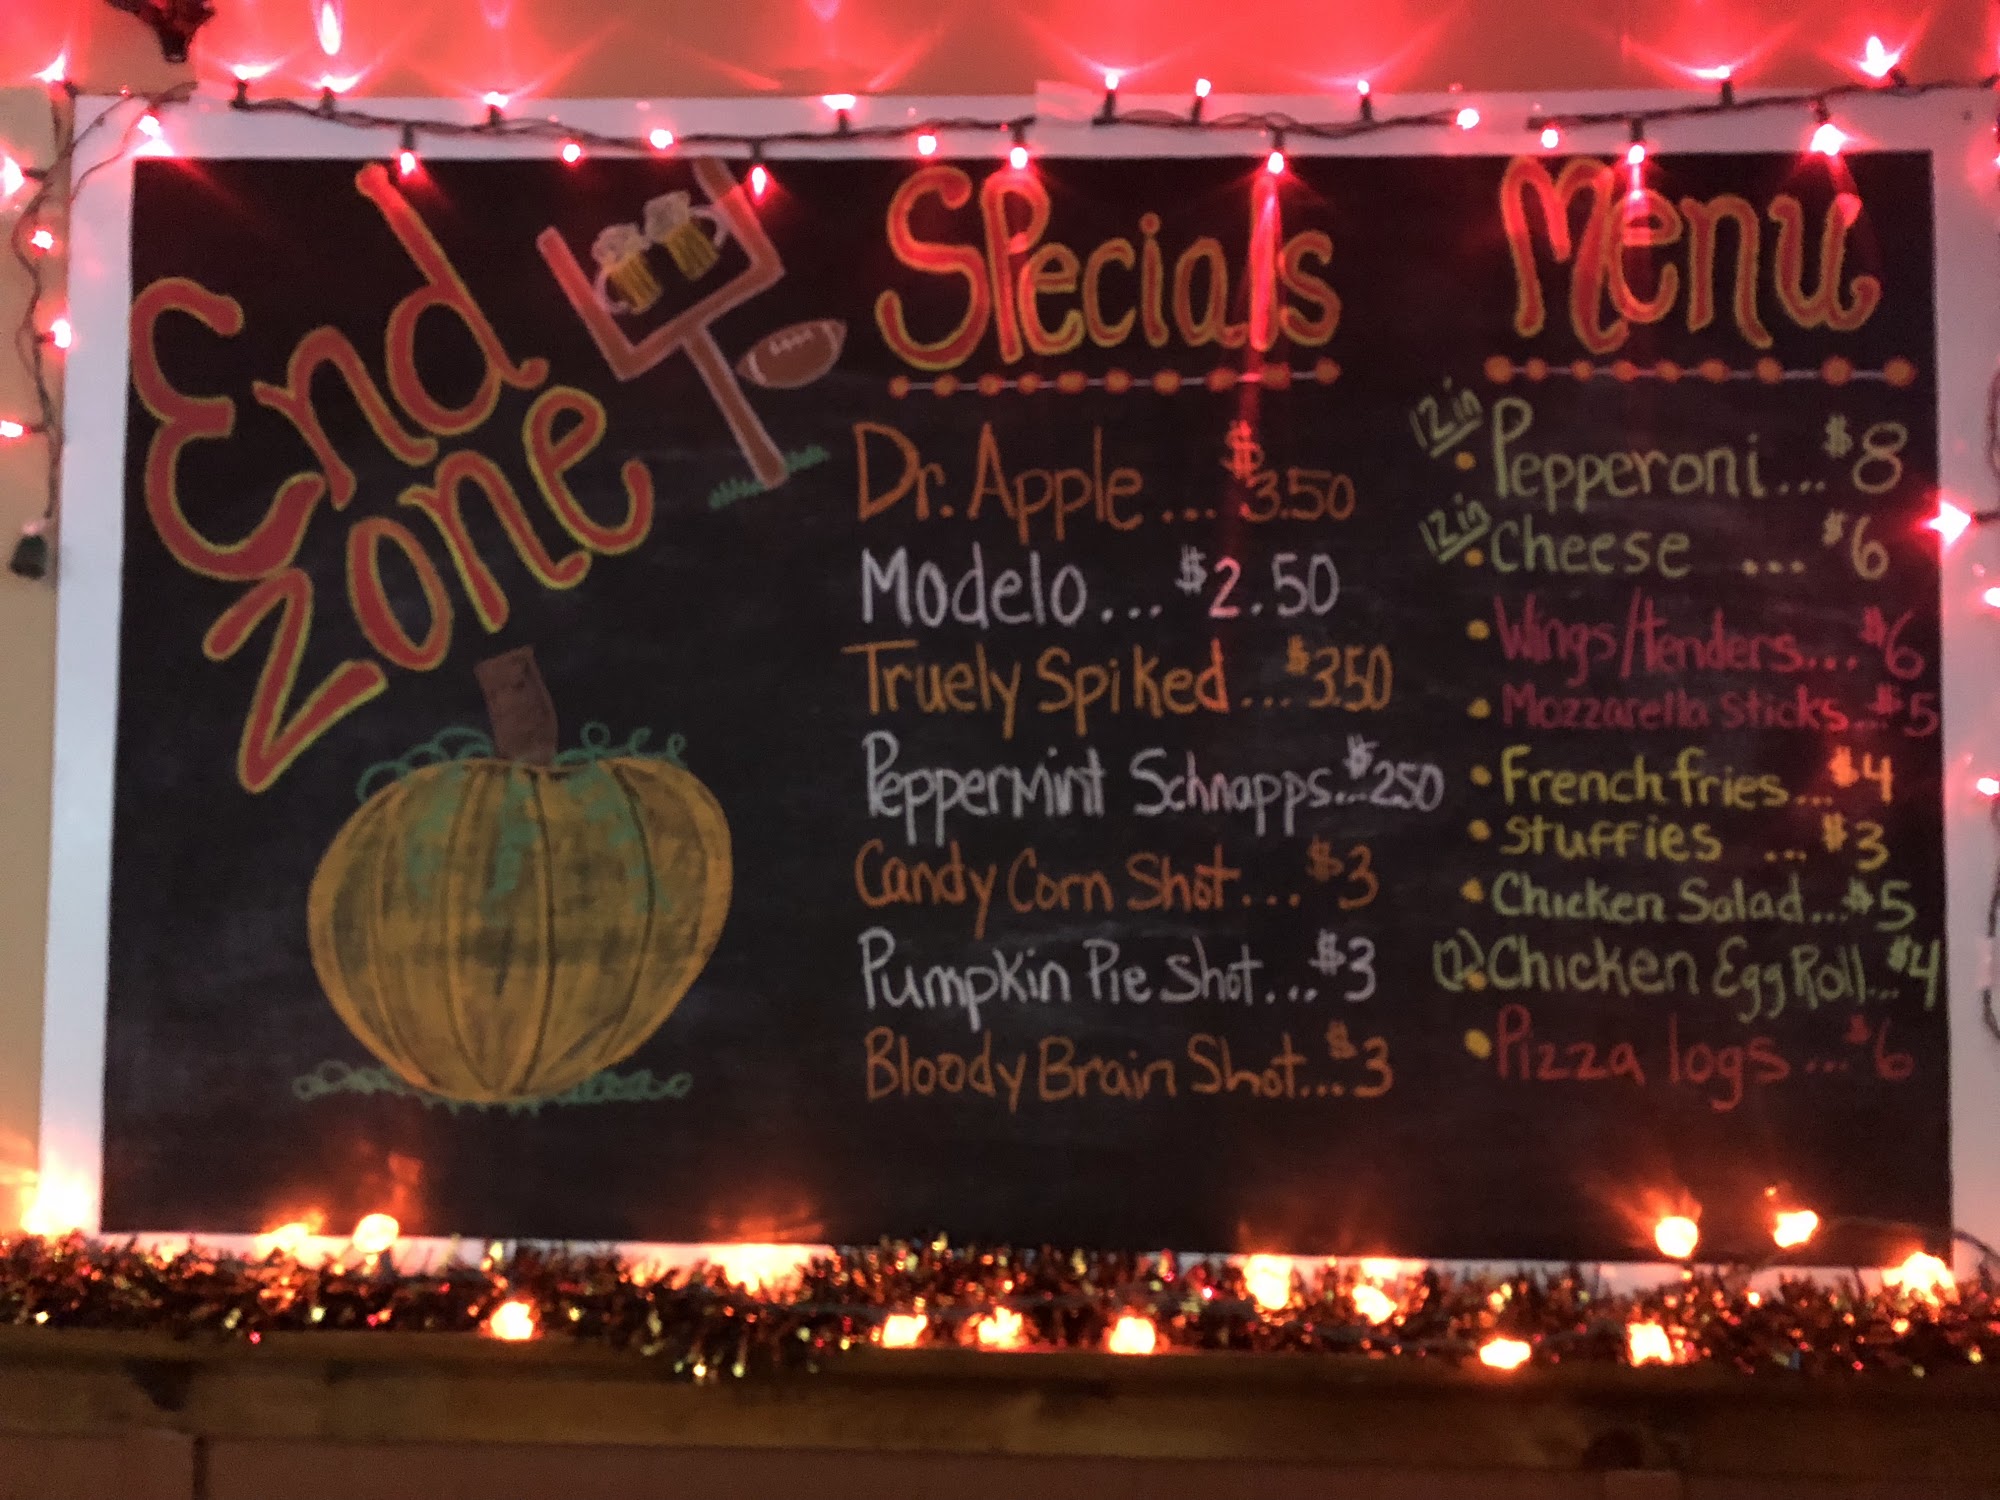 End
Zone
Specials
Dr. Apple ... $3.50
Modelo ... $2.50
Truely Spiked ... $3.50
Peppermint Schnapps... $250
Candy Corn Shot ... $3
Pumpkin Pie Shot ... $3
Bloody Brain Shot... $3
Menu
12 in Pepperoni ... $8
12 in Cheese ... $6
Wings/tenders... $6
Mozzarella Sticks... $5
French fries... $4
Stuffies ... $3
Chicken Salad... $5
Chicken Egg Roll... $4
Pizza logs ... $6